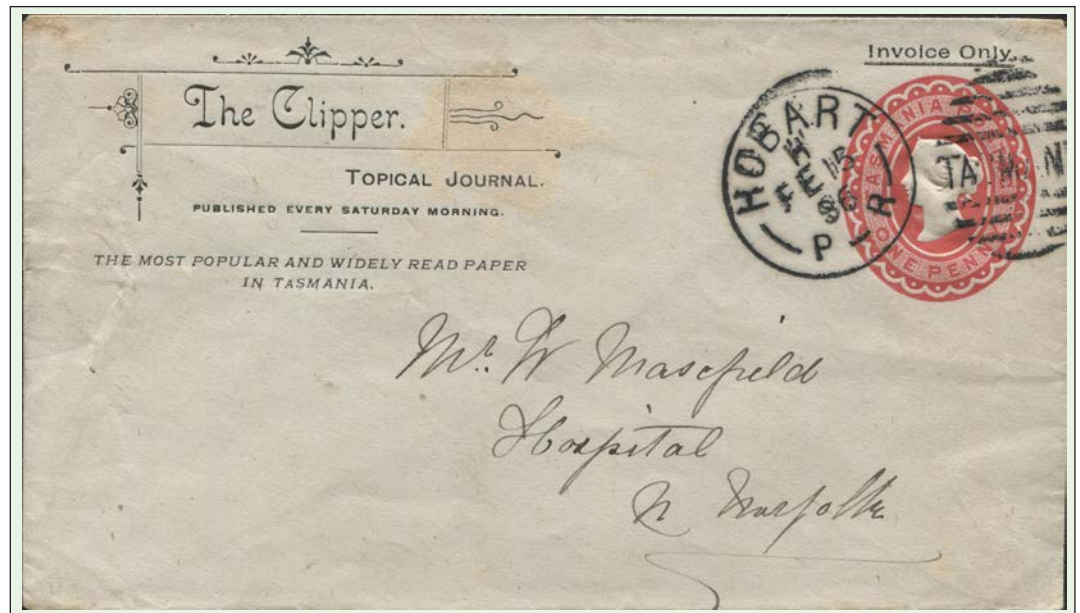 Invoice Only.
The Clipper.
TOPICAL JOURNAL.
PUBLISHED EVERY SATURDAY MORNING.
THE MOST POPULAR AND WIDELY READ PAPER
IN TASMANIA.
HOBART
FE 15
P R
TASMANIA
ONE PENNY
Mr. W Masefield
Hospital
N Norfolk